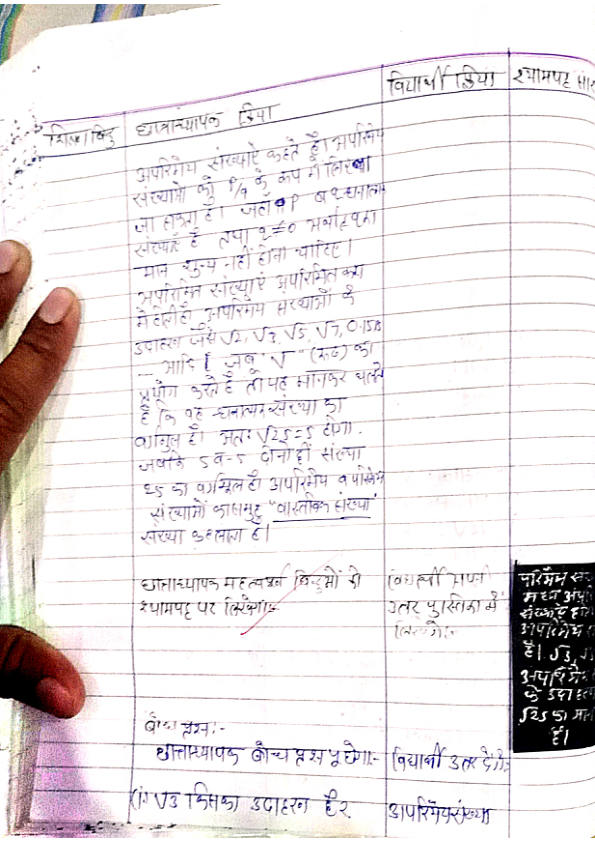 शिक्षण बिंदु छात्राध्यापक क्रिया विद्यार्थी क्रिया श्यामपट्ट
अपरिमेय संख्याऐ कहते है। अपरिमेय
संख्याओ को P/q के रूप में लिखा
जा सकता है। जहाँ P व
संख्याऐं है तथा q ≠ 0 अर्थात् q का
मान शुन्य नहीं होना चाहिए।
अपरिमित संख्याएं अपरिमित रूप
में होती है। अपरिमेय संख्याओं के
उदाहरण जैसे √2, √3, √5, √7, 0.15
... आदि। जब "√" (रूट) का
प्रयोग करते है तो यह मानकर चलते
है कि वह धनात्मक संख्या का
वर्गमूल है। अतः √25=5 होगा.
जबकि 5 व -5 दोनो हीं संख्या
25 का वर्गमूल है। अपरिमेय व परिमेय
संख्याओं का समुह "वास्तविक संख्या"
संख्या कहलाता है।
छात्राध्यापक महत्वपूर्ण बिन्दुओं को विद्यार्थी अपनी
श्यामपट्ट पर लिखेगा:- उतर पुस्तिका में
लिखेंगे:-
परिमेय
संख्याऐं
अपरिमेय
है। √3,
अपरिमेय
के उदाहरण
√25 का मान
है।
बोध प्रश्न:-
छात्राध्यापक बोध प्रश्न पूछेगा:- विद्यार्थी उतर देंगे:
(i) √3 किसका उदाहरण है? अपरिमेय संख्या